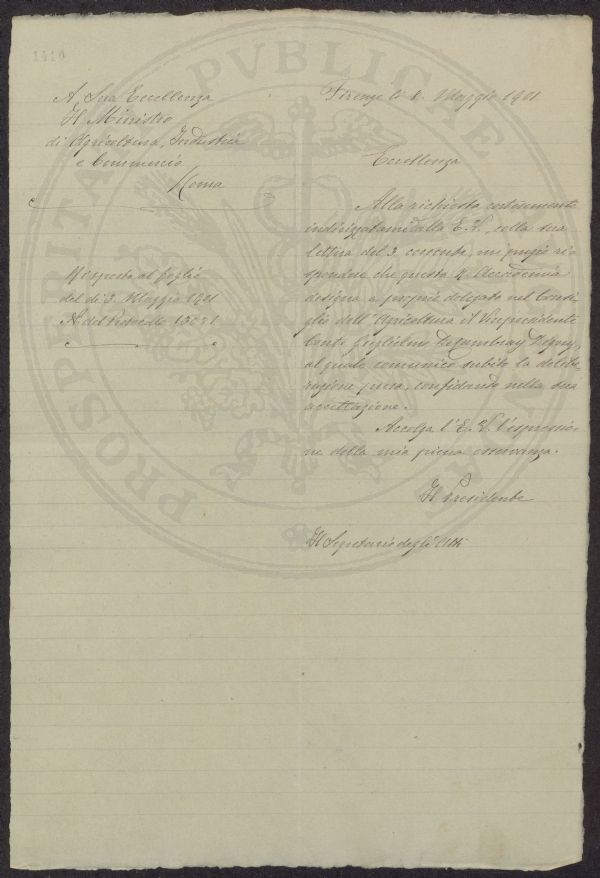 1410
A Sua Eccellenza
Il Ministro
di Agricoltura, Industria
e Commercio
Roma
Risposta al foglio
del dì 3. Maggio 1901
N. del Protocollo
Firenze li 8. Maggio 1901
Eccellenza
Alla richiesta cortesemente
indirizzatami dalla E. V., colla sua
lettera del 3. corrente, mi pregio ri-
spondere che questa R. Accademia
designa a proprio delegato nel Consi-
glio dell'Agricoltura il Vicepresidente
Conte Guglielmo De Cambray Digny,
al quale comunico subito la delibe-
razione presa, confidando nella sua
accettazione.
Accolga l'E. V. l'espressio-
ne della mia piena osservanza.
Il Presidente
Il Segretario degli Atti
PROSPERITATI PVBLICAE